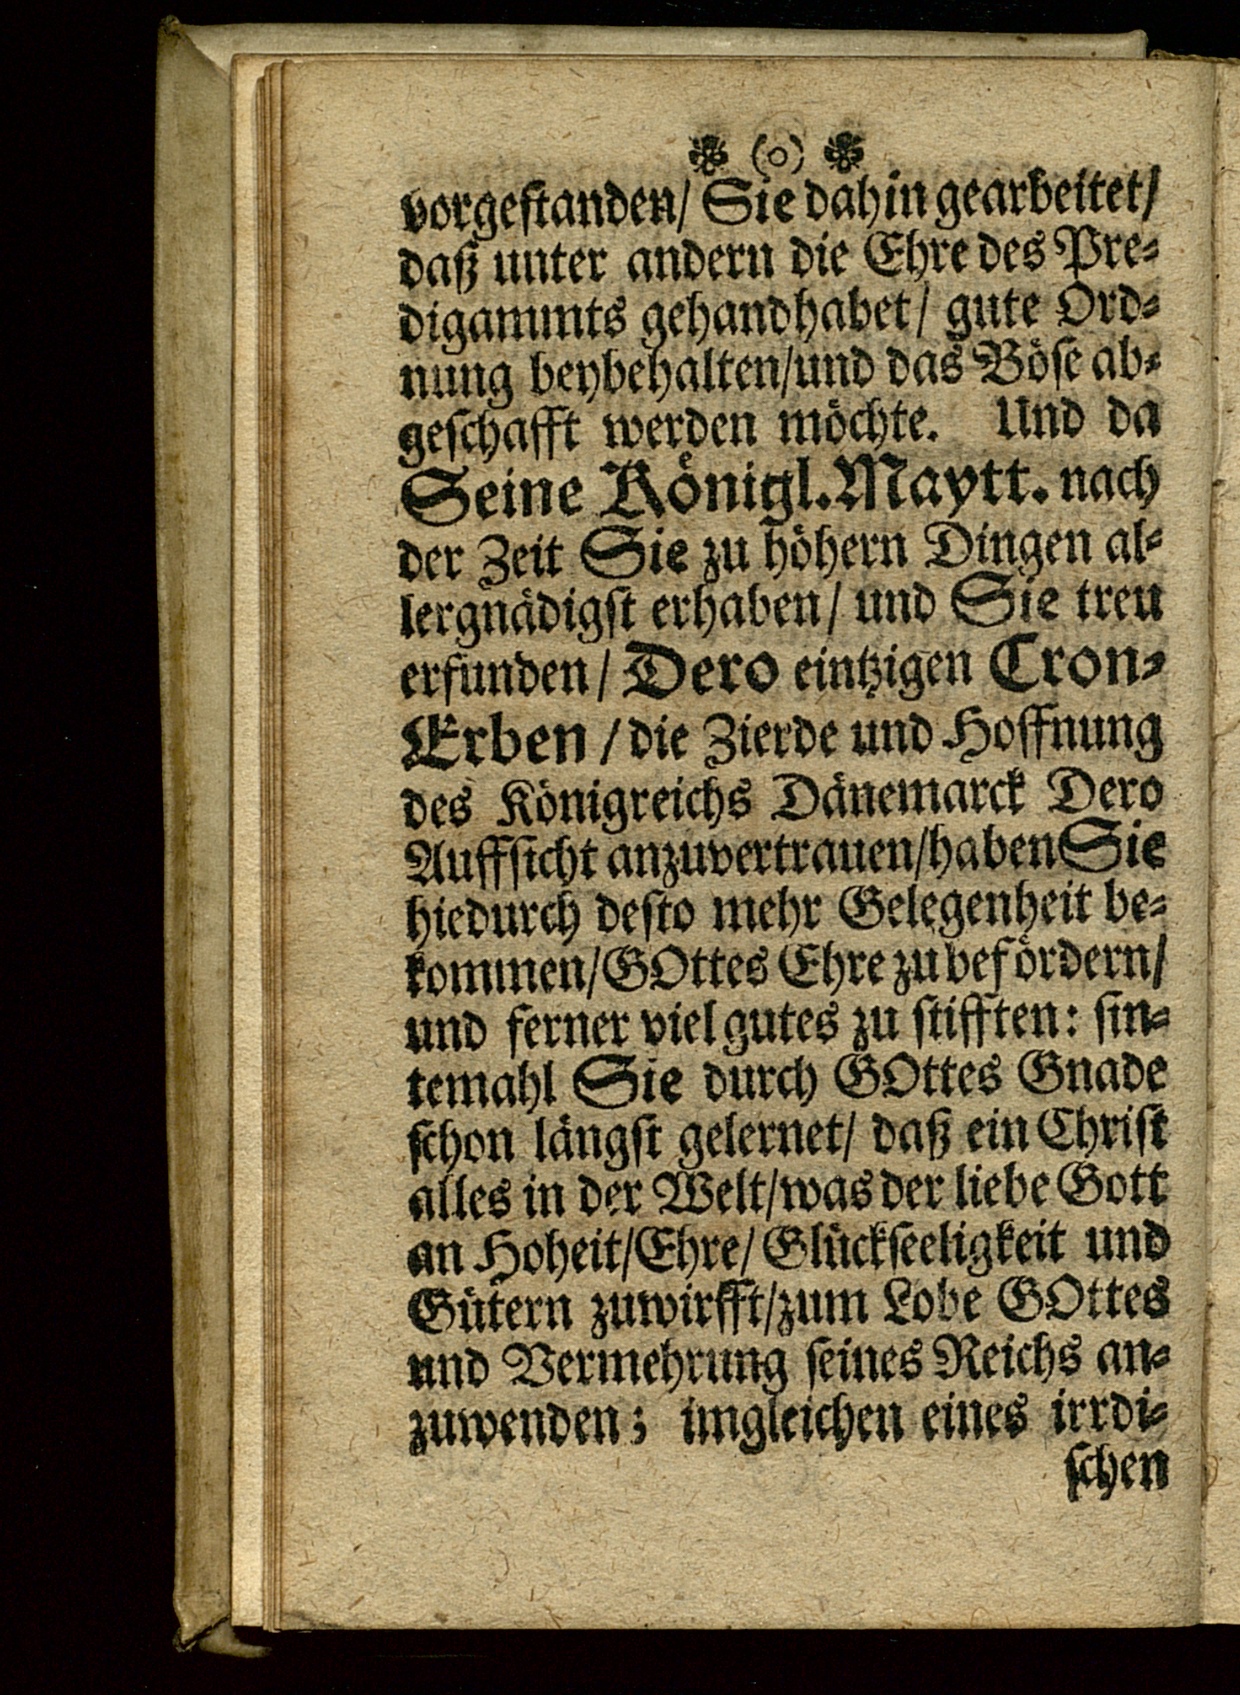 (o)
vorgestanden/ Sie dahin gearbeitet/
daß unter andern die Ehre des Pre-
digammts gehandhabet/ gute Ord-
nung beybehalten/und das Böse ab-
geschafft werden möchte. Und da
Seine Königl. Maytt. nach
der Zeit Sie zu höhern Dingen al-
lergnädigst erhaben/ und Sie treu
erfunden/ Dero eintzigen Cron-
Erben / die Zierde und Hoffnung
des Königreichs Dänemarck Dero
Auffsicht anzuvertrauen/haben Sie
hiedurch desto mehr Gelegenheit be-
kommen/GOttes Ehre zu befördern/
und ferner viel gutes zu stifften: sin-
temahl Sie durch GOttes Gnade
schon längst gelernet/ daß ein Christ
alles in der Welt/was der liebe Gott
an Hoheit/Ehre/ Glückseeligkeit und
Gütern zuwirfft/zum Lobe GOttes
und Vermehrung seines Reichs an-
zuwenden; imgleichen eines irrdi-
schen